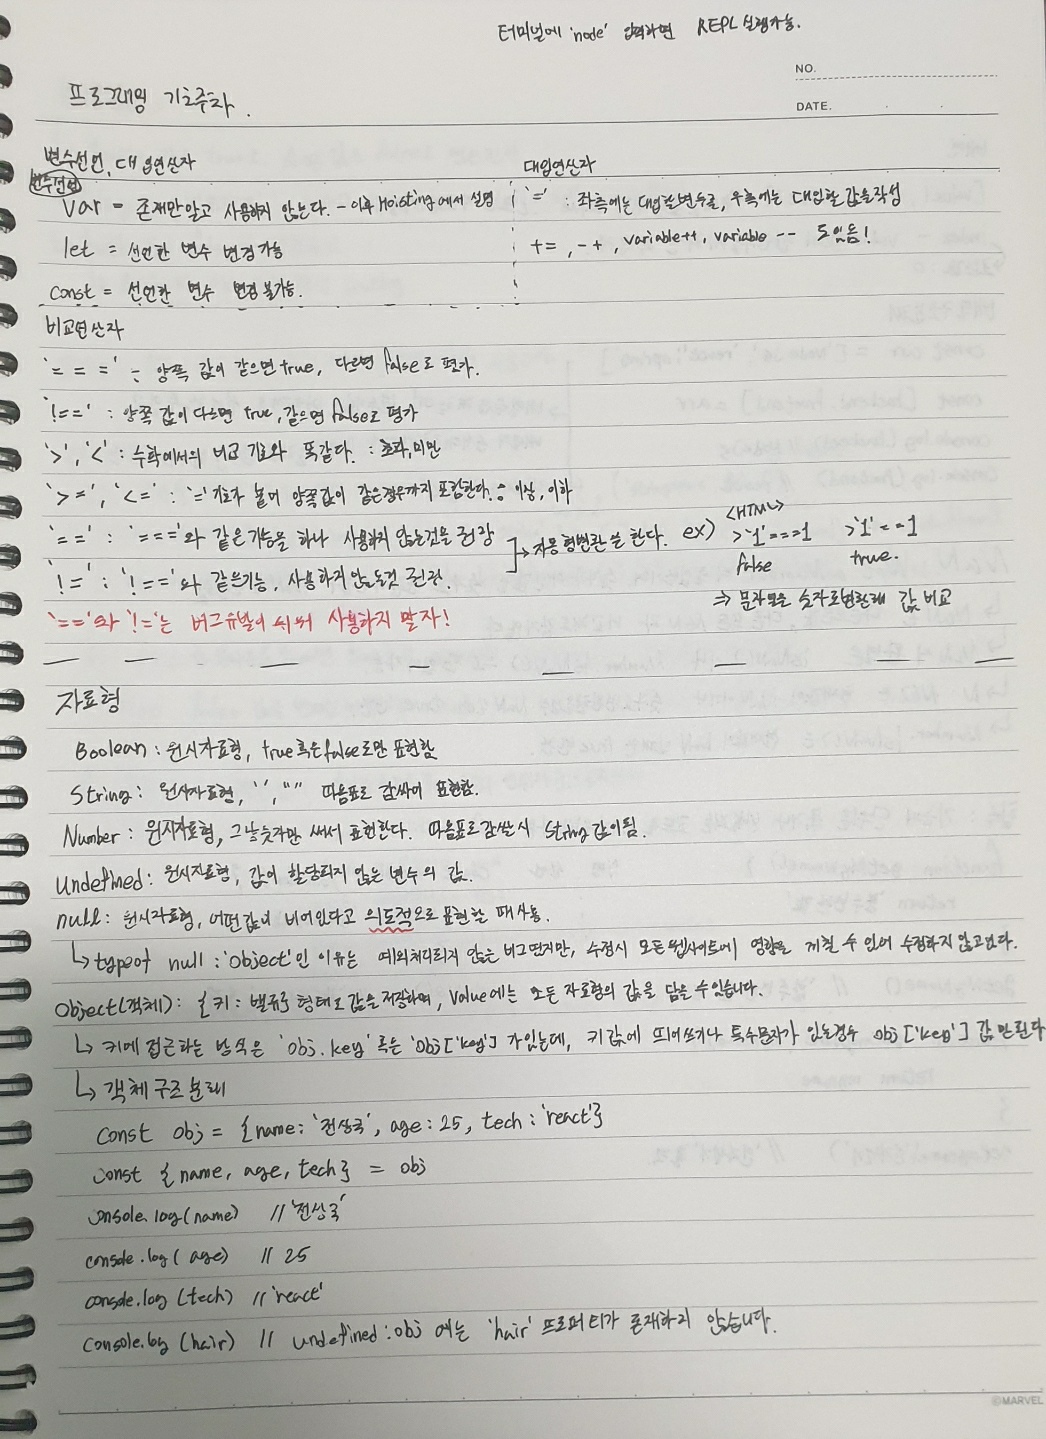 터미널에 'node' 입력하면 REPL 실행가능.
NO.
프로그래밍 기초주차.
DATE.
변수선언, 대입연산자
변수선언
var = 존재만알고 사용하지 않는다. - 이후 Hoisting에서 설명
let = 선언한 변수 변경가능
const = 선언한 변수 변경 불가능.
대입연산자
'=' : 좌측에는 대입할변수를, 우측에는 대입할 값을작성
+= , -+ , variable++, variable -- 도있음!
비교연산자
'===' : 양쪽 값이 같으면 true, 다르면 false로 평가.
'!==' : 양쪽 값이 다르면 true, 같으면 false로 평가
'>', '<' : 수학에서의 비교 기호와 똑같다. : 초과, 미만
'>=', '<=' : '='기호가 붙어 양쪽값이 같은경우까지 포함한다. : 이상, 이하
'==' : '==='와 같은기능을 하나 사용하지 않는것을 권장
'!=' : '!=='와 같은기능, 사용하지않는것 권장
→ 자동형변환을 한다. ex)
<HTML>
>'1'===1 >'1'==1
false true.
⇒ 문자열을 숫자로변환해 값 비교
'=='와 '!='는 버그유발이 쉬워 사용하지 말자!
자료형
Boolean : 원시자료형, true혹은false로만 표현함
String : 원시자료형, '', "" 따옴표로 감싸서 표현함.
Number : 원시자료형, 그냥숫자만 써서 표현한다. 따옴표로감쌀시 String값이됨.
undefined : 원시자료형, 값이 할당되지 않은 변수의 값.
null : 원시자료형, 어떤값이 비어있다고 의도적으로 표현할 때사용.
↳ typeof null : 'object'인 이유는 예외처리되지 않은 버그였지만, 수정시 모든 웹사이트에 영향을 끼칠 수 있어 수정하지 않고있다.
Object(객체) : {키 : 밸류} 형태로 값을 저장하며, Value에는 모든 자료형의 값을 담을 수있습니다.
↳ 키에 접근하는 방식은 'obj.key' 혹은 'obj['key'] 가있는데, 키값에 띄어쓰기나 특수문자가 있는경우 obj['key'] 값만된다
↳ 객체 구조 분해
const obj = {name : '전상국', age : 25, tech : 'react'}
const {name, age, tech} = obj
console.log(name) // '전상국'
console.log( age) // 25
console.log (tech) // 'react'
console.log (hair) // undefined : obj 에는 'hair' 프로퍼티가 존재하지 않습니다.
©MARVEL